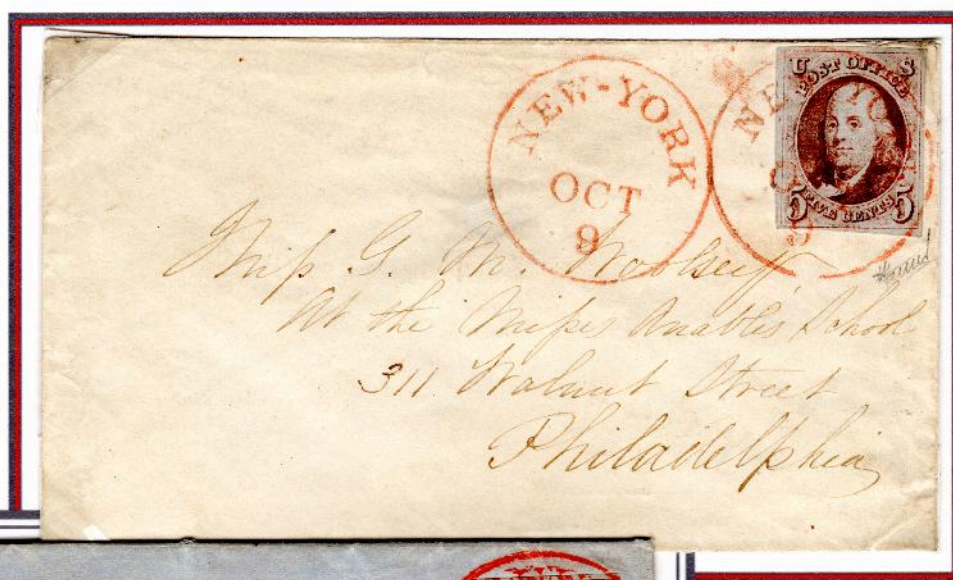 NEW-YORK
OCT
9
NEW YORK
9
U S
POST OFFICE
5 FIVE CENTS 5
Miss G. M. Woolsey
At the Misses Anable's School
311 Walnut Street
Philadelphia